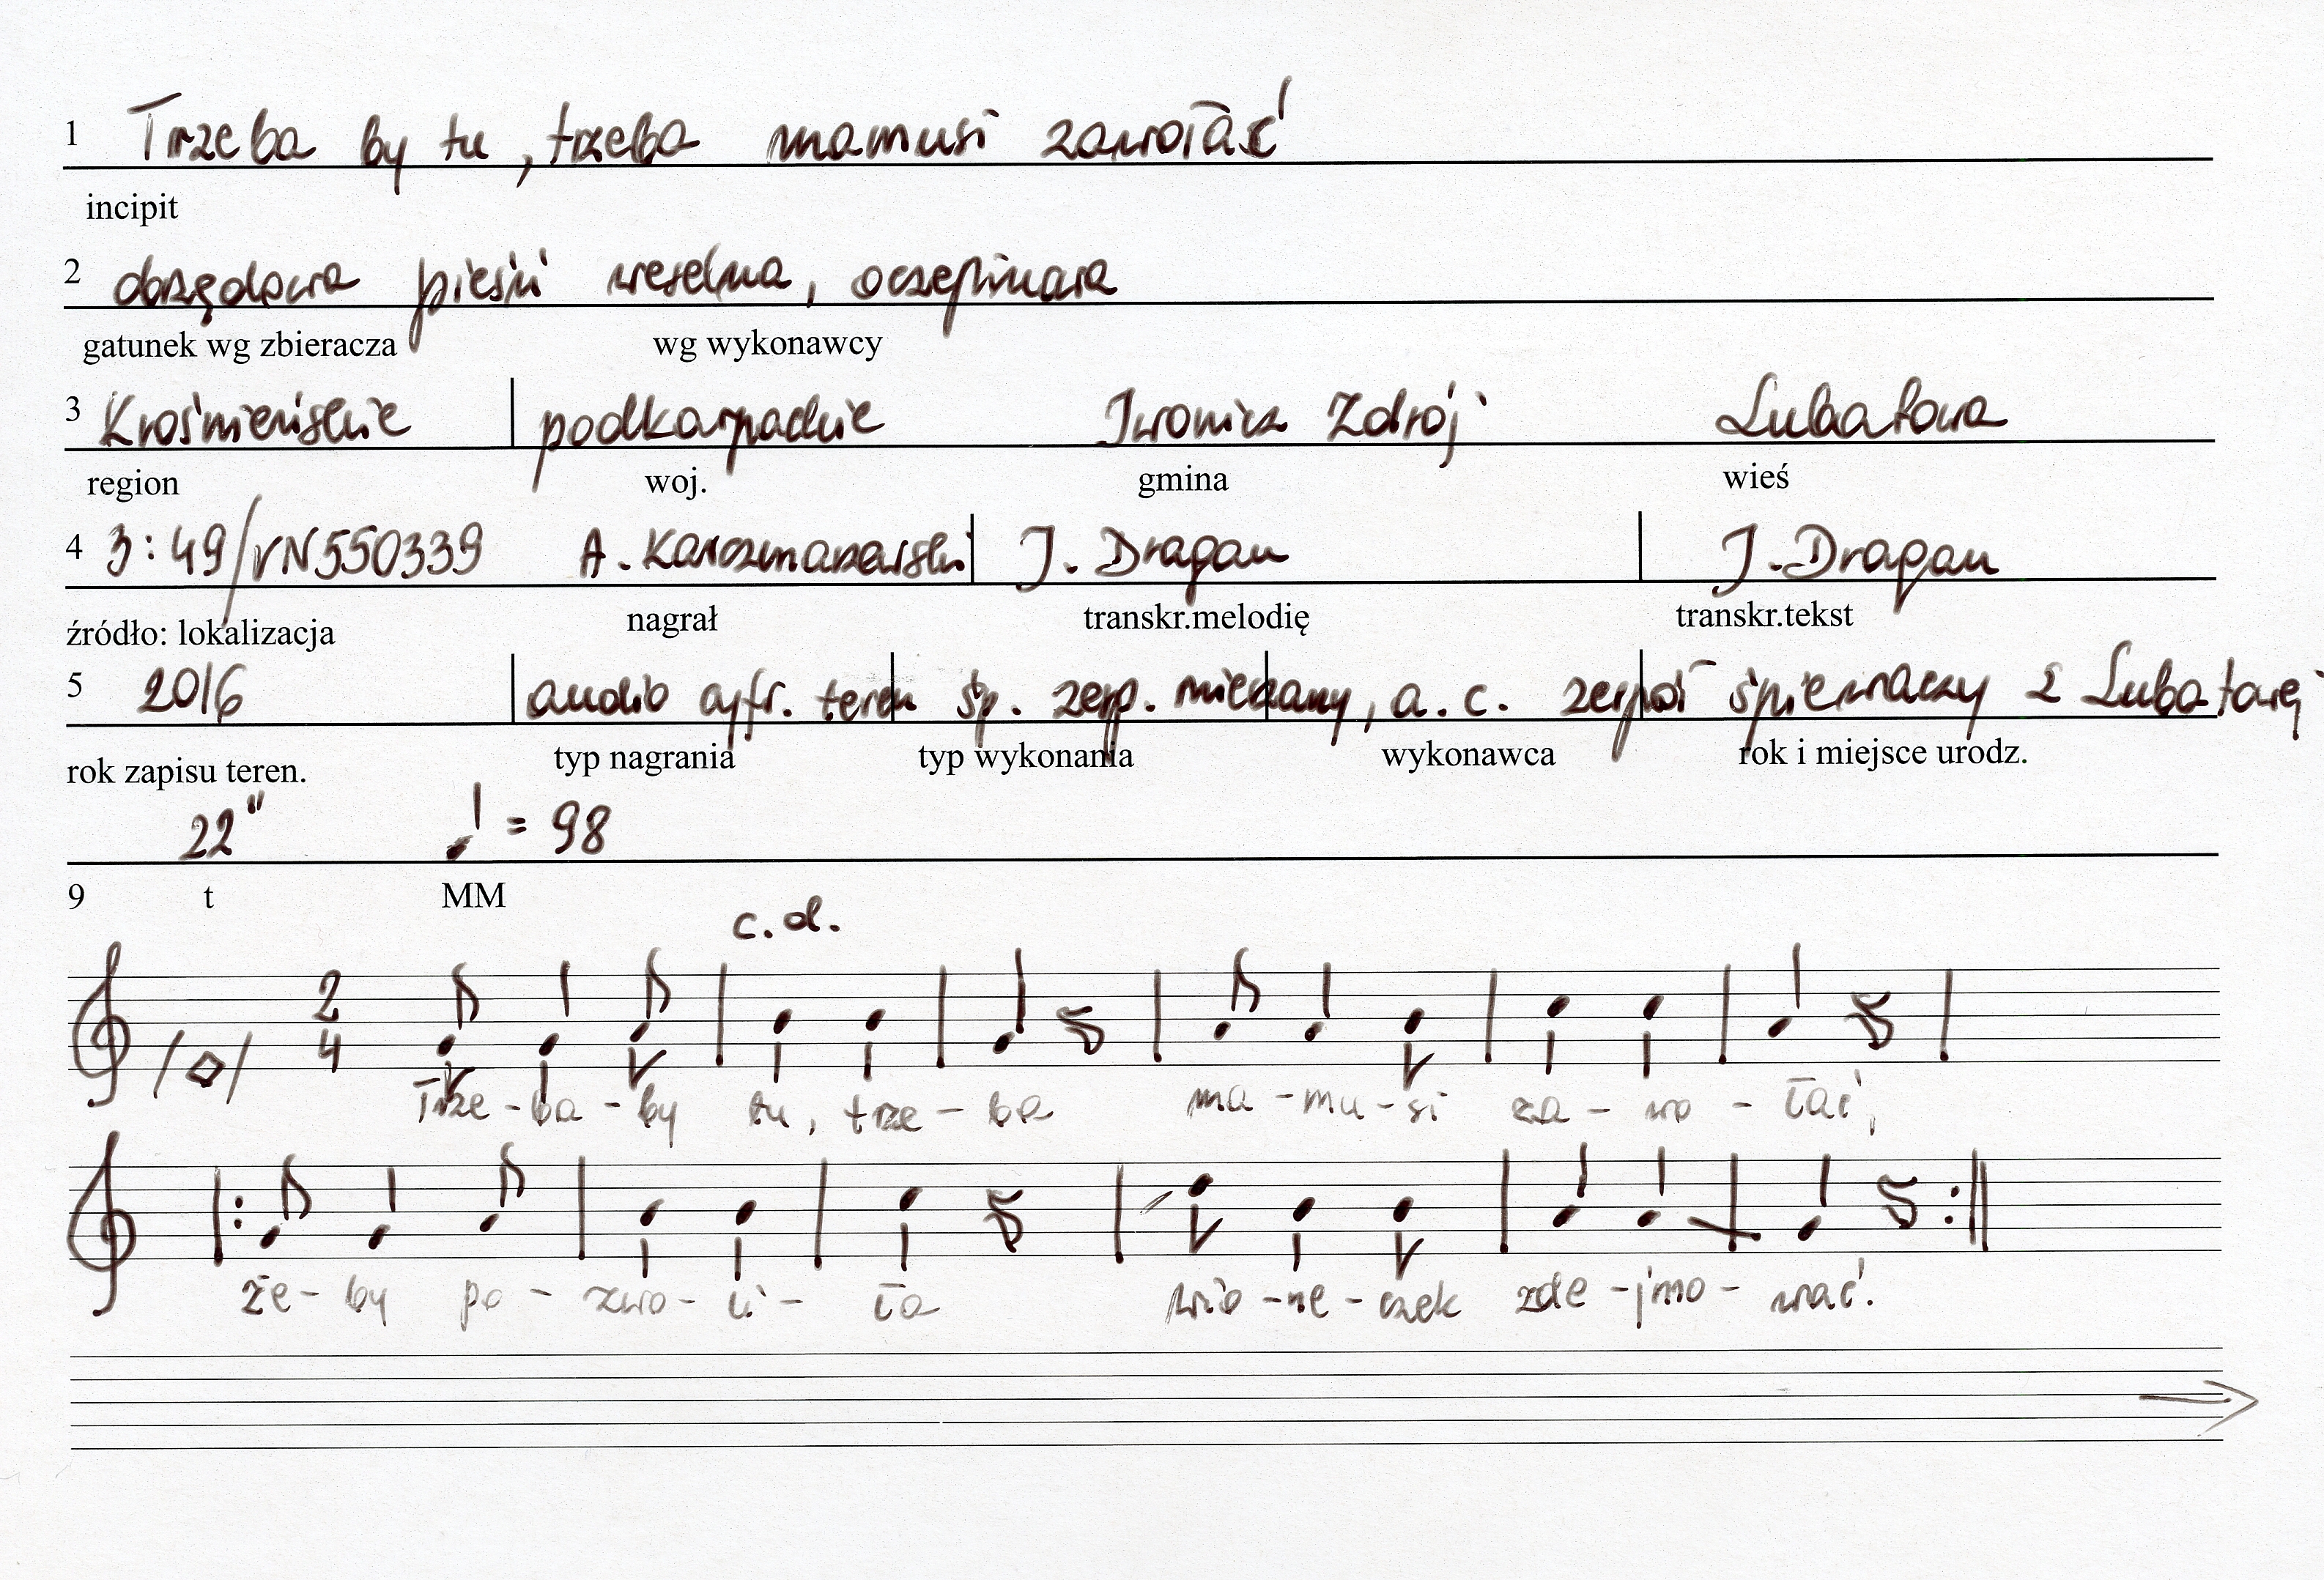 1 Trzeba by tu, trzeba mamusi zawołać
incipit
2 obrzędowa pieśń weselna, oczepinowa
gatunek wg zbieracza wg wykonawcy
3 Krośnieńskie podkarpackie Iwonicz Zdrój Lubatowa
region woj. gmina wieś
4 3:49/VN550339 A. Karczmarzewski J. Dragan J. Dragan
źródło: lokalizacja nagrał transkr.melodię transkr.tekst
5 2016 audio cyfr. teren śp. zesp. mieszany, a.c. zespół śpiewaczy z Lubatowej
rok zapisu teren. typ nagrania typ wykonania wykonawca rok i miejsce urodz.
22" ♩ = 98
9 t MM
c.d.
2 4
Trze - ba - by tu, trze - ba ma - mu - si za - wo - łać,
że - by po - zwo - li - ła wio - ne - czek zde - jmo - wać.